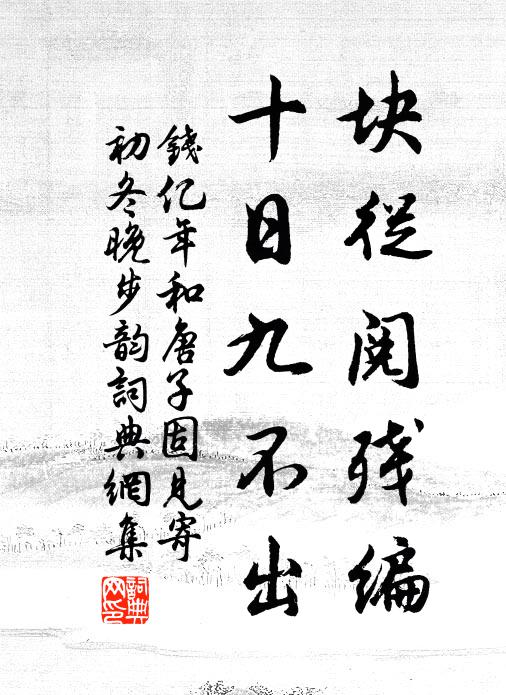 块從閱残编
十日九不出
錢亿年和唐子固見寄
初冬晚步韵詞典網集
詞典网印